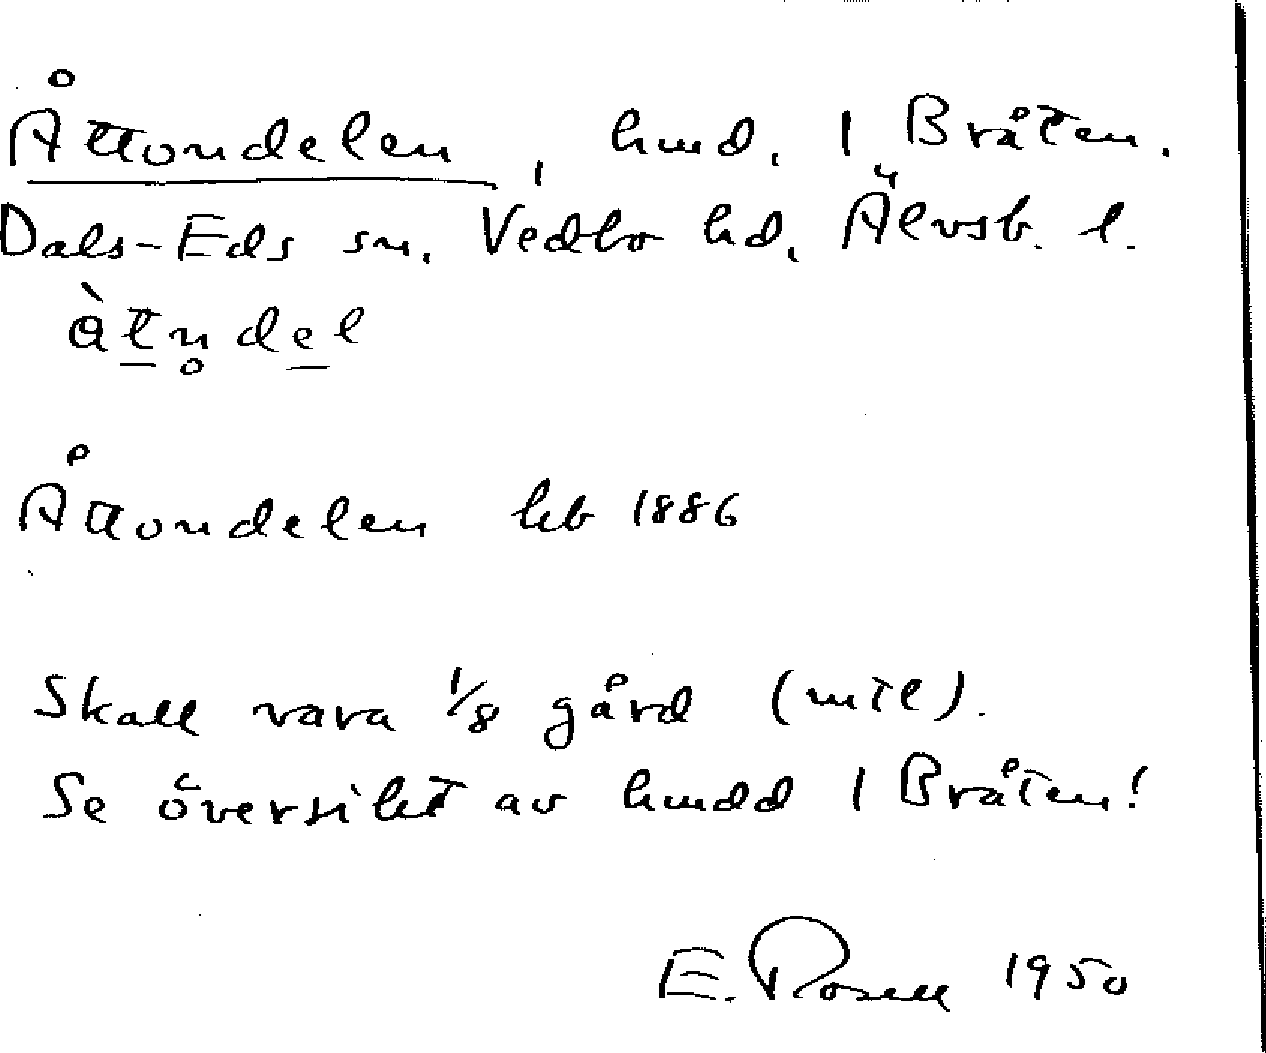 Åttondelen, hmd. 1 Bråten.
Dals-Eds sn. Vedbo hd. Älvsb. l.
àtn̥del
Åttondelen hb 1886
Skall vara 1/8 gård (mtl).
Se översikt av hmdd 1 Bråten!
E. Rosell 1950